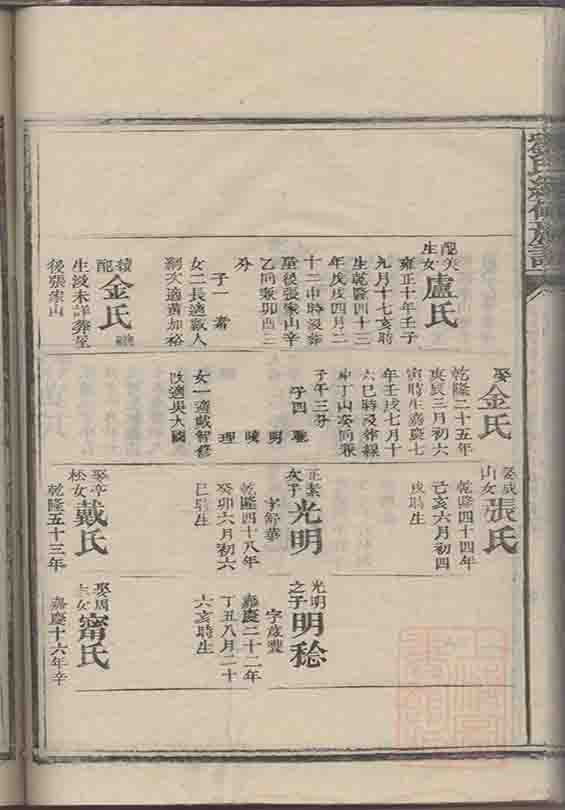 配矢
生女
盧氏
雍正十年壬子
九月十七亥時
生乾隆四十三
年戊戌四月二
十二申時没葬
屋後張家山辛
乙向兼卯酉三
分
子一
女二長適戴人
次適黄加裕
續配
金氏
生没未詳葬屋
後張家山
娶
金氏
乾隆二十五年
庚辰三月初六
寅時生嘉慶七
年壬戌七月十
六巳時没葬
丁山癸向兼
子午三分
子四
明
理
女一適戴智修
改適吳大國
娶成
山女
張氏
乾隆四十四年
己亥六月初四
戌時生
正素
次子
光明
字舒華
乾隆四十八年
癸卯六月初六
巳時生
娶辛
松女
戴氏
乾隆五十三年
光明
之子
明稔
字歲豐
嘉慶二十二年
丁丑八月二十
六亥時生
娶周
女
甯氏
嘉慶十六年辛